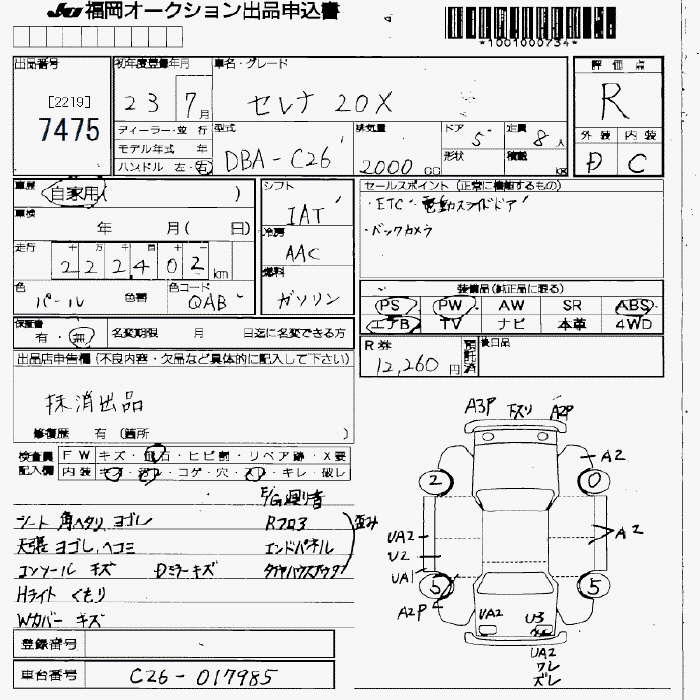 JU 福岡オークション出品申込書
*1001000734*
出品番号 初年度登録年月 車名・グレード 評価点
[2219]
7475
23 7月 セレナ 20X R
ディーラー・並行 型式 排気量 ドア 5 定員 8人 外装 内装
モデル年式 年 DBA-C26 2000cc 形状 積載 kg D C
ハンドル 左・右
車歴 自家用( ) シフト IAT セールスポイント(正常に機能するもの)
・ETC ・電動スライドドア
・バックカメラ
車検 年 月( 日) 冷房 AAC
走行 十 万 千 百 十
222402km 燃料 ガソリン
色 パール 色替 色コード QAB
装備品(純正品に限る)
PS PW AW SR ABS
エアB TV ナビ 本革 4WD
保証書 有・無 名変期限 月 日迄に名変できる方
R券 12,260円 預託済 後日品
出品店申告欄(不良内容・欠品など具体的に記入して下さい)
抹消出品
修復歴 有(箇所 )
検査員記入欄 FW キズ・飛石・ヒビ割・リペア跡・X要
内装 キズ・汚レ・コゲ・穴・スレ・キレ・破レ
E/G廻リ音
シート 角ヘタリ、ヨゴレ Rフロア 歪み
天張 ヨゴレ、ヘコミ エンドパネル
コンソール キズ Dミラーキズ タイヤハウスアウター
Hライト くもり
Wカバー キズ
登録番号
車台番号 C26-017985
A3P 下スリ A2P
A2
2 0
UA2 A2
U2
UA1
5 5
A2P
UA2 U3
UA2
ワレ
ズレ